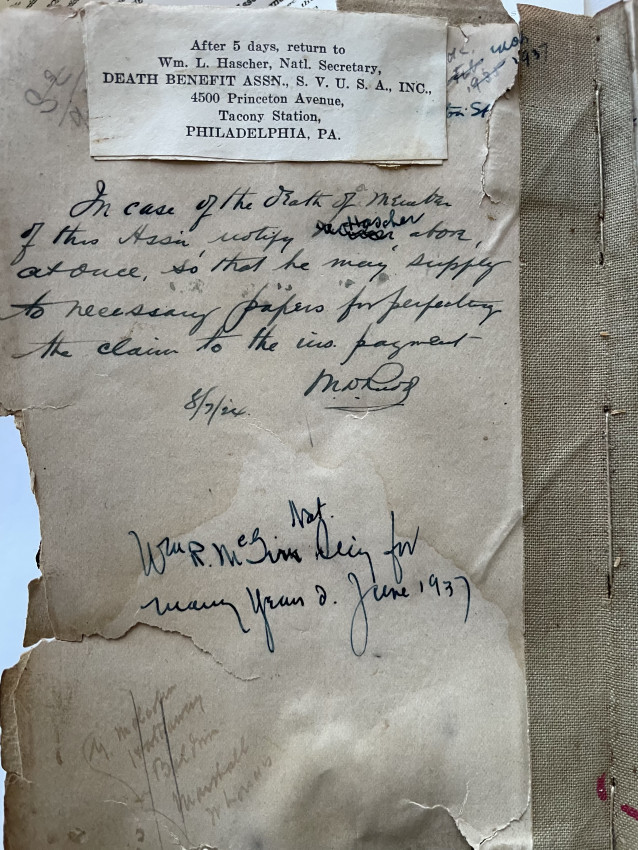 After 5 days, return to
Wm. L. Hascher, Natl. Secretary,
DEATH BENEFIT ASSN., S. V. U. S. A., INC.,
4500 Princeton Avenue,
Tacony Station,
PHILADELPHIA, PA.
1937
In case of the death of Member
of this Assn, notify Hascher above,
at once, so that he may supply
to necessary papers for perfecting
the claim to the ins. payment
8/7/24.
Nat.
Wm R. for
many years d. June 1937
Baldwin
Marshall